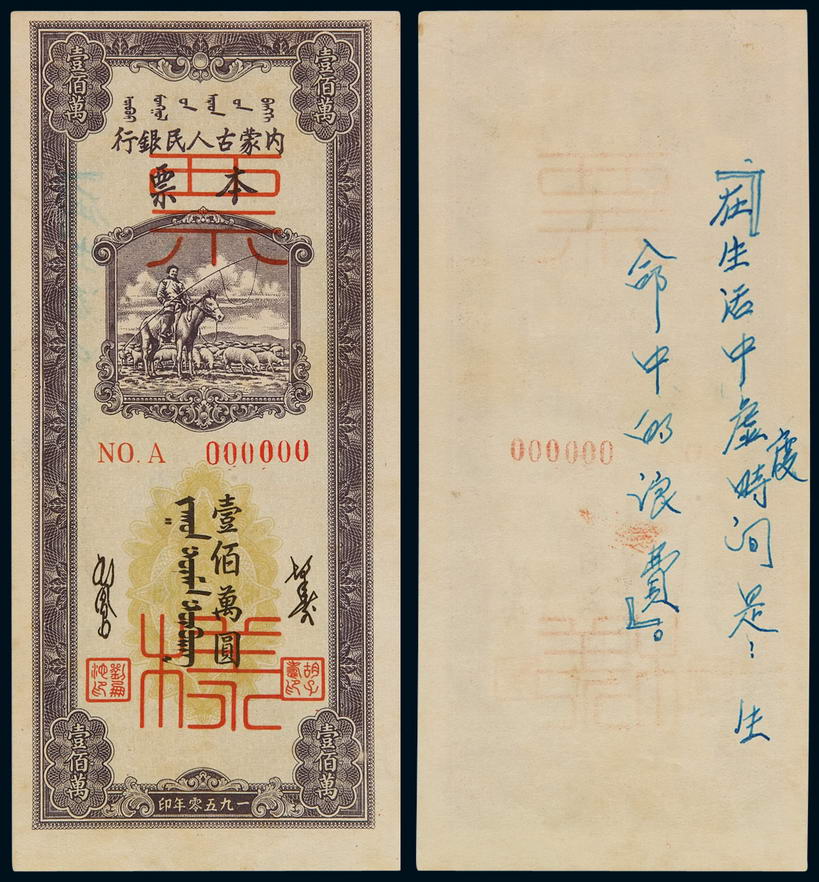 壹佰萬
壹佰萬
内蒙古人民銀行
本票
票
NO. A 000000
壹佰萬圓
樣
壹佰萬
壹佰萬
一九五零年印
「在生活中虛度時間是：生
命中的浪費」。
000000